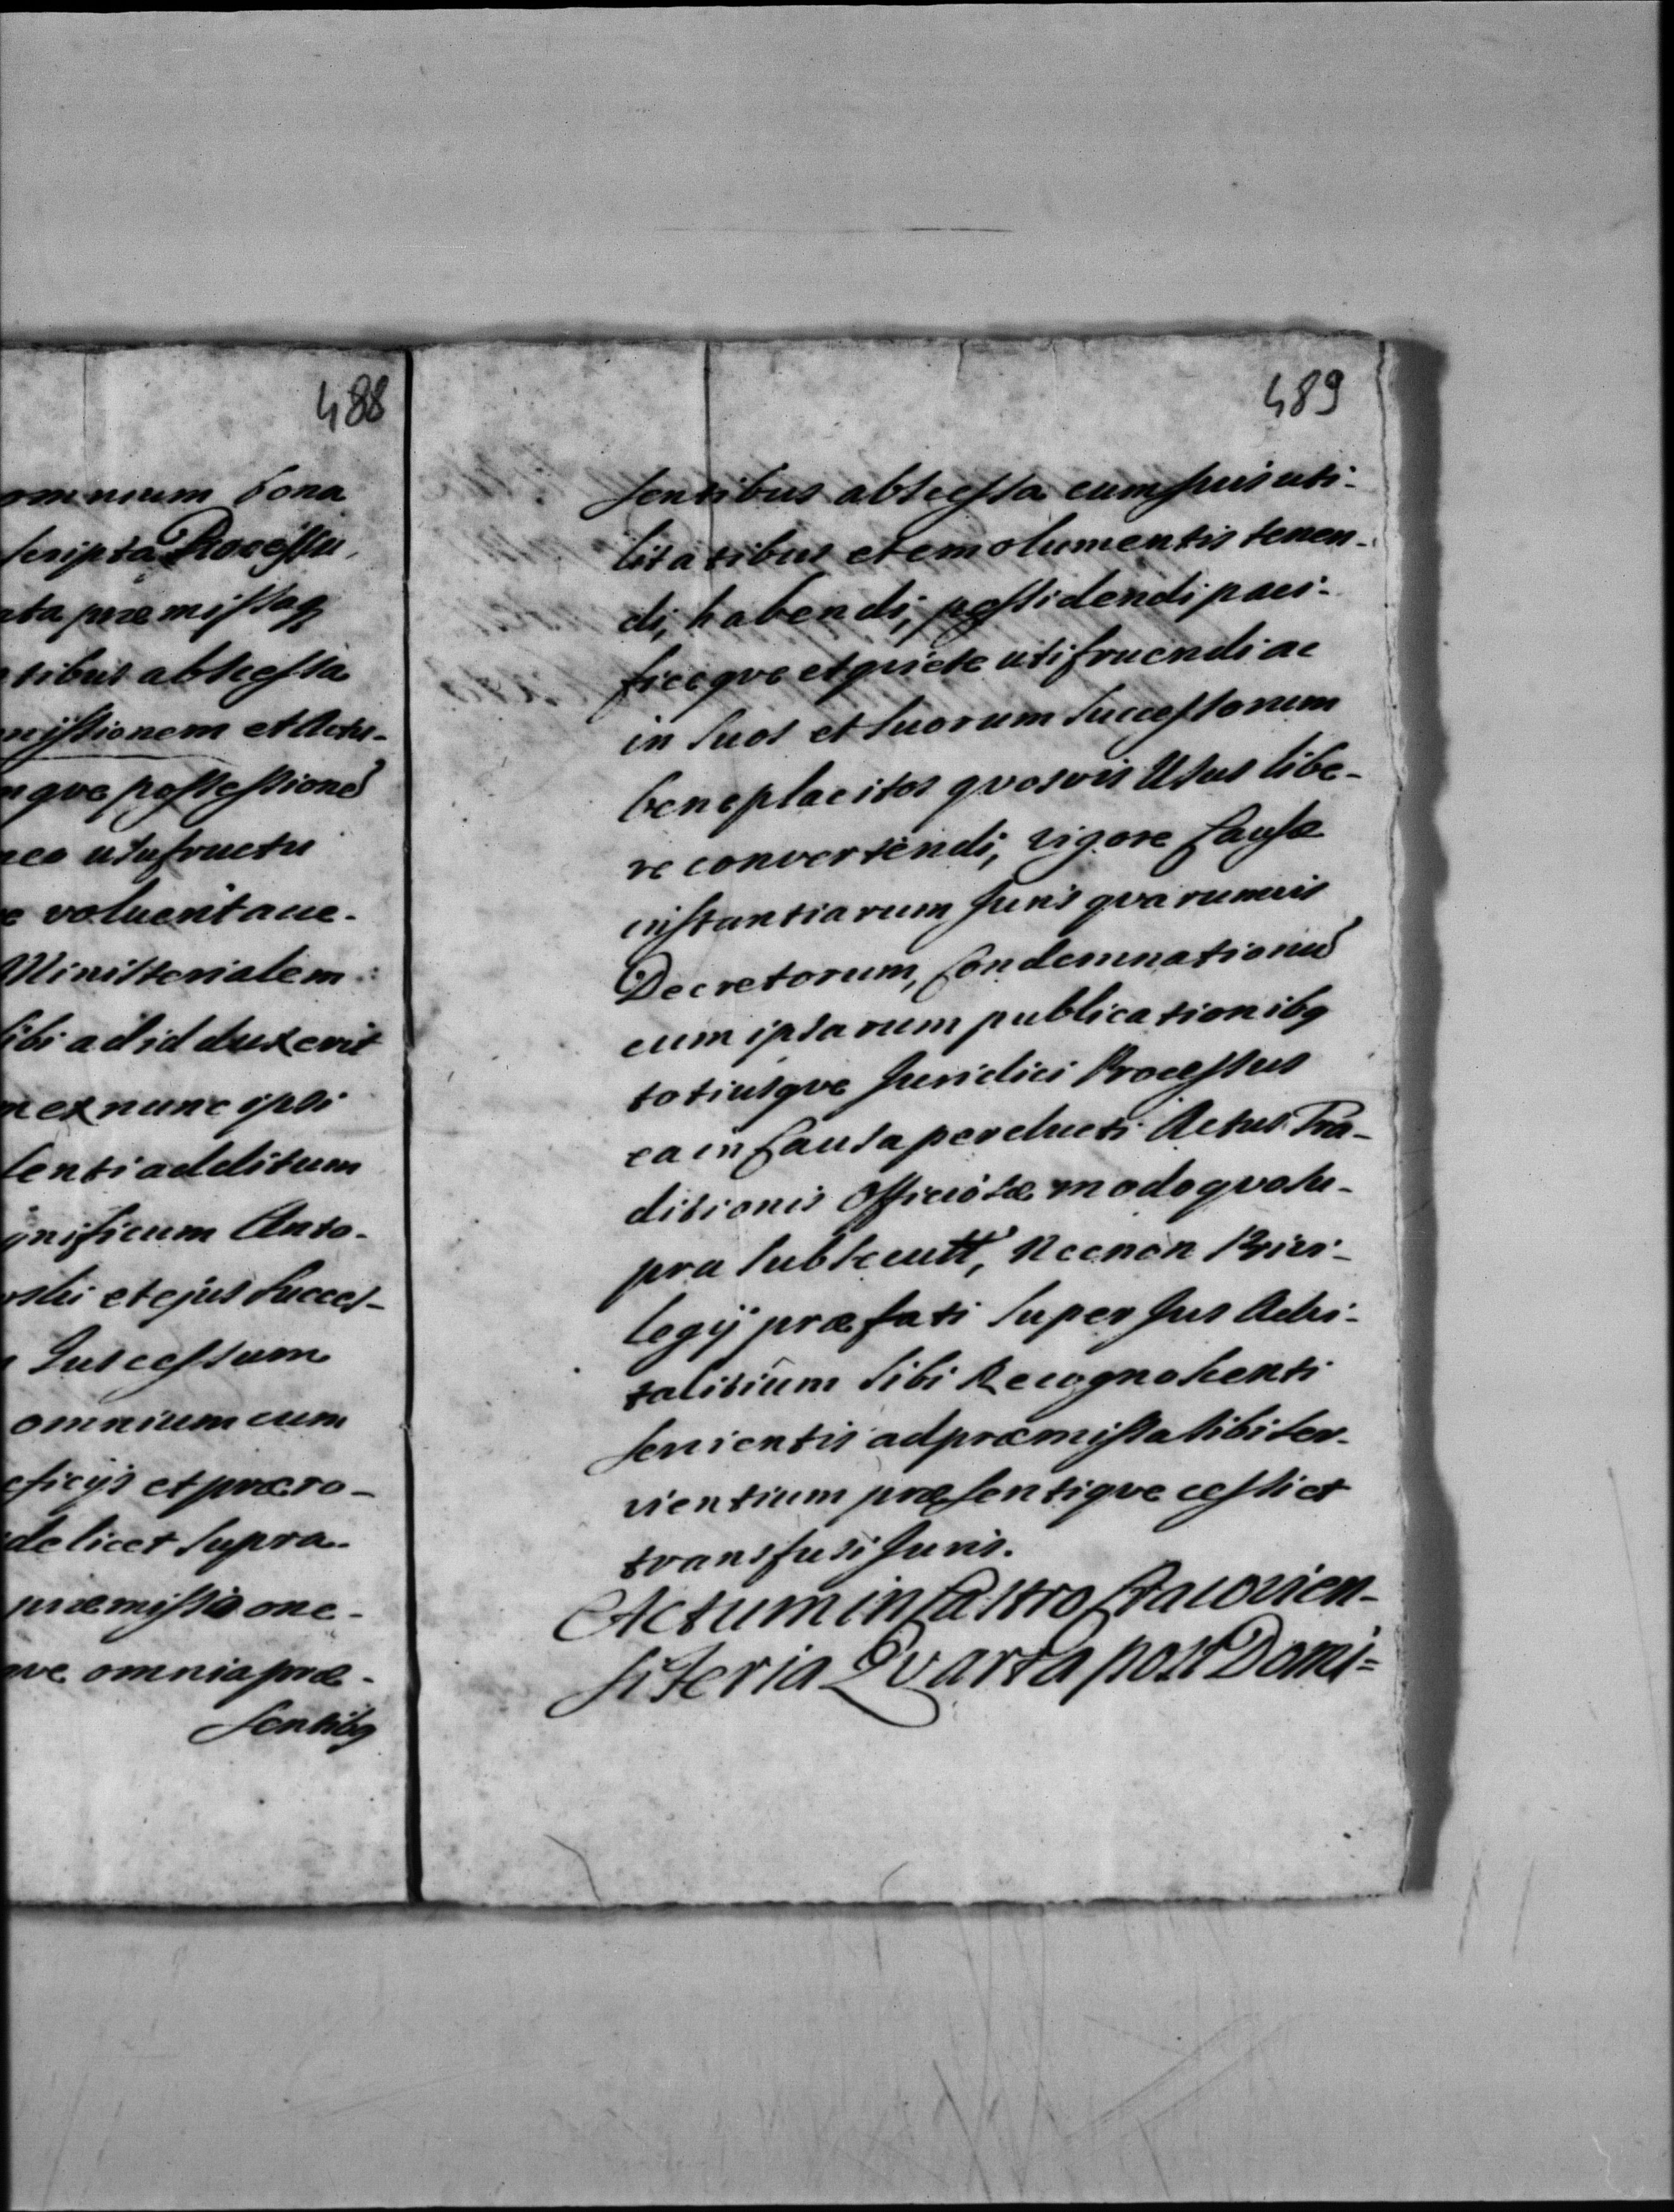 488
omnium bona
scripta Processu
ata præmissaq
ntibus abscessa
missionem et Actu-
mque possessione
neo usufructu
e voluerit aue-
Ministerialem
sibi ad id duxerit
n ex nunc ipsi
senti additum
gnificum Anto-
rski et ejus Succes-
Successum
omnium cum
eficijs et præro-
delicet supra-
præmissis one-
que omnia præ-
sentibq
489
sentibus abscessa cum suis uti-
litatibus et emolumentis tenen-
di, habendi, possidendi paci-
ficeqve et qviete utifruendi ac
in suos et suorum Successorum
beneplacitos qvosvis Usus libe-
re convertendi, vigore Causæ
instantiarum Juris qvarumvis
Decretorum, Condemnationu
cum ipsarum publicationibq
totiusqve Juridici Processus
ea in Causa perducti Actus Tra-
ditionis Officiosæ modo qvo su-
pra subsecutt, Necnon Privi-
legij præfati super Jus Advi-
talitium sibi Recognoscenti
servientis ad præmissa sibi ser-
vientium præsentiqve cessi et
transfusi Juris.
Actum in Castro Cracovien-
si Feria Qvarta post Domi=